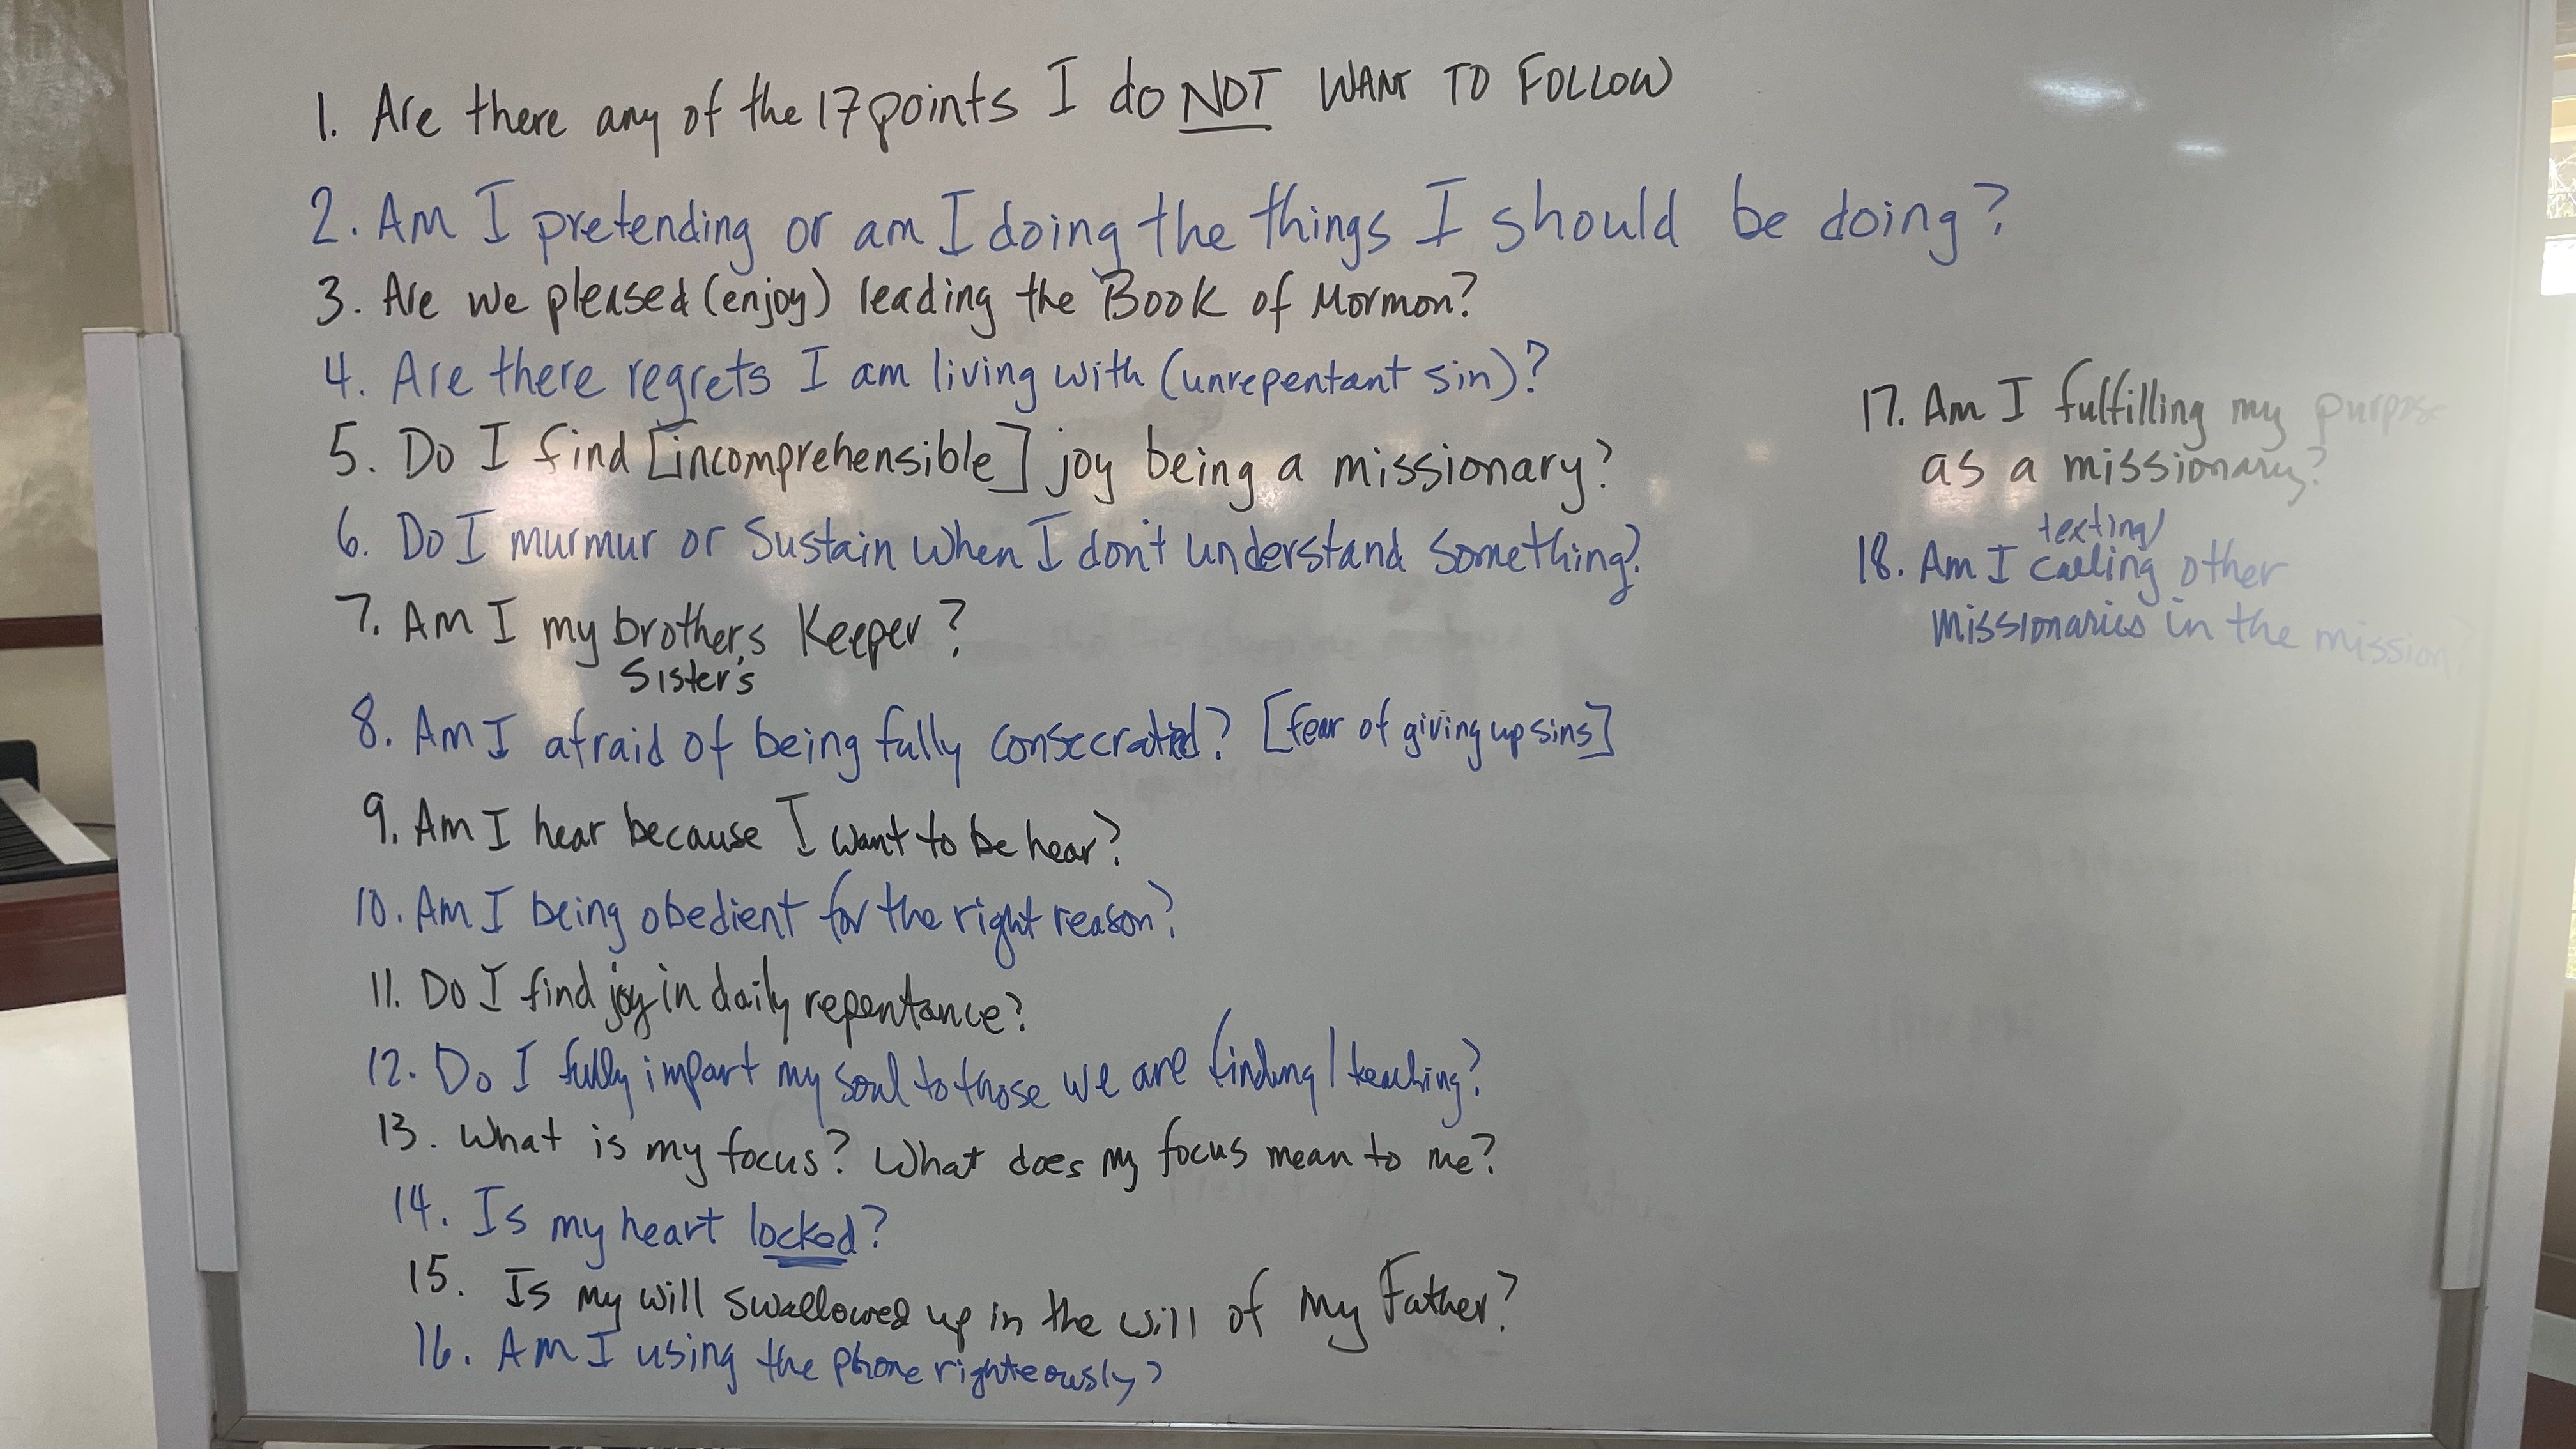 1. Are there any of the 17 points I do NOT WANT TO FOLLOW
2. Am I pretending or am I doing the things I should be doing?
3. Are we pleased (enjoy) leading the Book of Mormon?
4. Are there regrets I am living with (unrepentant sin)?
5. Do I find [incomprehensible] joy being a missionary?
6. Do I murmur or Sustain when I don't understand something?
7. Am I my brother's Keeper?
Sister's
8. Am I afraid of being fully consecrated? [fear of giving up sins]
9. Am I hear because I want to be hear?
10. Am I being obedient for the right reason?
11. Do I find joy in daily repentance?
12. Do I fully impart my soul to those we are finding/teaching?
13. What is my focus? What does my focus mean to me?
14. Is my heart locked?
15. Is my will swallowed up in the will of my Father?
16. Am I using the phone righteously?
17. Am I fulfilling my purpose
as a missionary?
texting/
18. Am I calling other
missionaries in the mission?